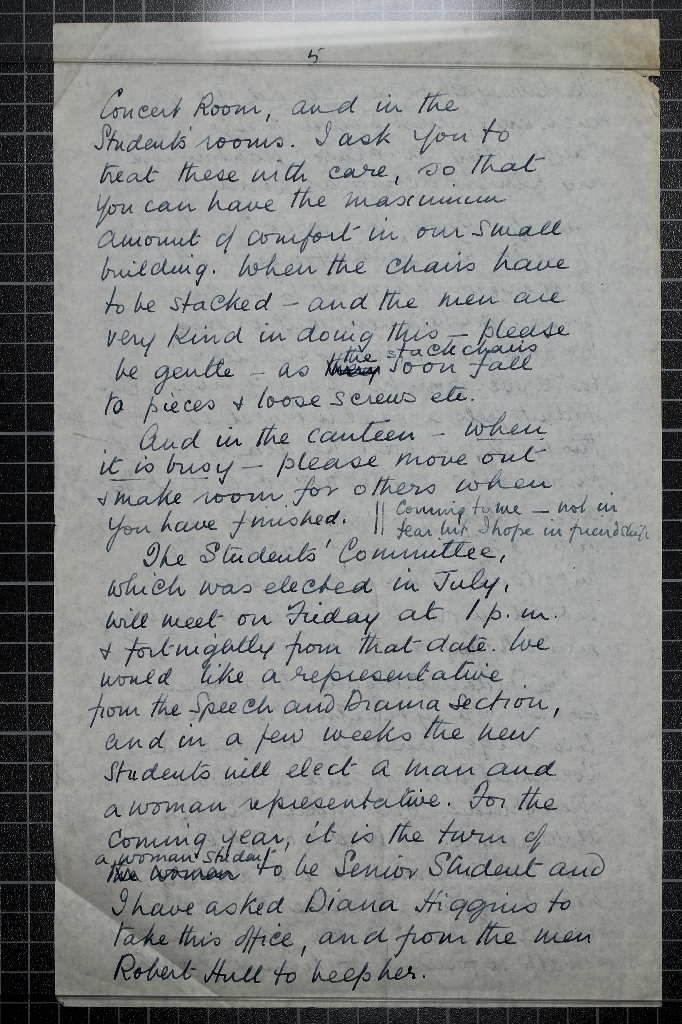 5
Concert Room, and in the
Students' rooms. I ask you to
treat these with care, so that
you can have the maximum
amount of comfort in our small
building. When the chairs have
to be stacked – and the men are
very kind in doing this – please
the stack chairs
be gentle – as they soon fall
to pieces & loose screws etc.
And in the canteen – when
it is busy – please move out
& make room for others when
you have finished. || Coming to me – not in
fear but I hope in friendship
The Students' Committee,
which was elected in July,
will meet on Friday at 1 p.m.
& fortnightly from that date. We
would like a representative
from the Speech and Drama section,
and in a few weeks the new
students will elect a man and
a woman representative. For the
coming year, it is the turn of
a woman student
the woman to be Senior Student and
I have asked Diana Higgins to
take this office, and from the men
Robert Hull to help her.